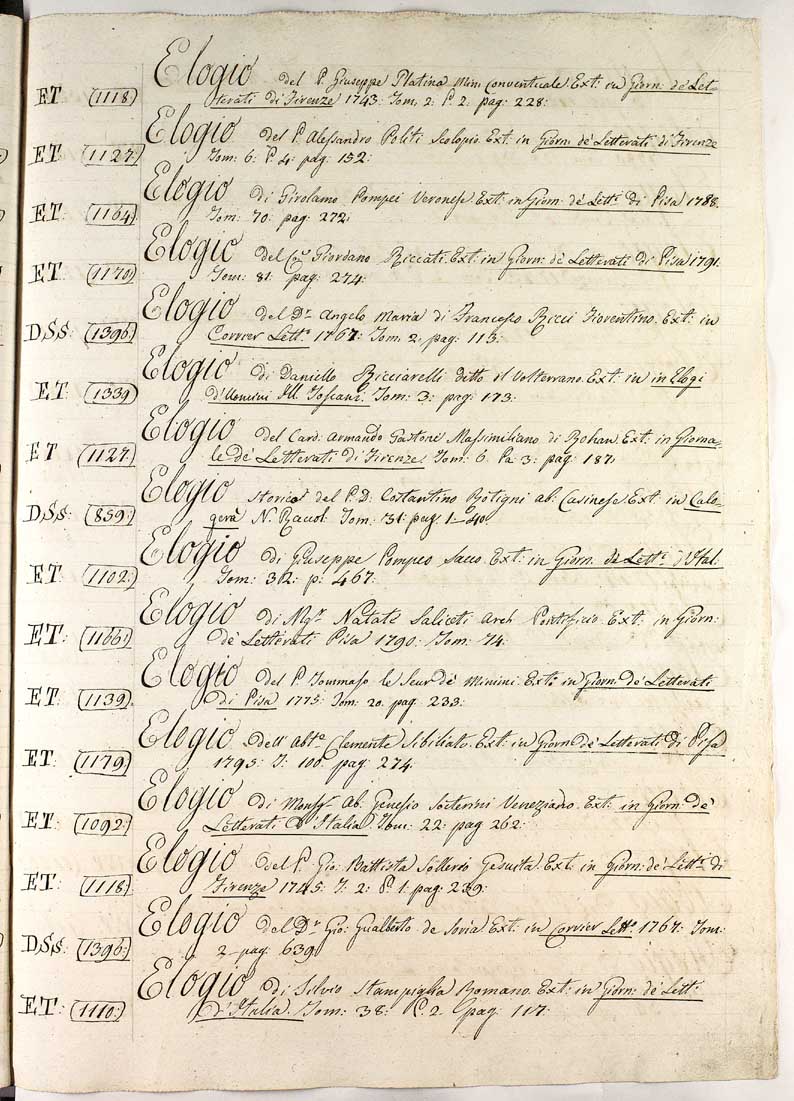 Elogio del P. Giuseppe Platina Min. Conventuale Ext: in Giorn: dè Let-
ET (1118) terati di Firenze 1743. Tom. 2. P. 2. pag: 228:
Elogio del P. Alessandro Politi Scolopio. Ext: in Giorn: dè Letterati di Firenze
ET: (1127) Tom: 6: P. 4. pag: 152:
Elogio di Girolamo Pompei Veronese. Ext: in Giorn: dè Lett.i di Pisa 1788.
ET: (1164) Tom: 70. pag: 272:
Elogio del Co: Giordano Riccati. Ext: in Giorn: dè Letterati di Pisa 1791.
ET: (1170) Tom: 81: pag: 274:
Elogio del D.r Angelo Maria di Francesco Ricci Fiorentino. Ext: in
DSS: (1396) Corrier Lett.o 1767: Tom. 2. pag: 113:
Elogio di Daniello Ricciarelli ditto il Volterrano. Ext: in in Elogi
ET: (1339) d'Uomini Ill. Toscani. Tom: 3: pag: 173:
Elogio del Card: Armando Gastone Massimiliano di Rohan. Ext: in Giorna-
ET (1127) le dè Letterati di Firenze. Tom: 6. Pa: 3: pag: 187:
Elogio storico del P. D: Costantino Rotigni ab: Casinese Ext: in Calo-
DSS: (859) gerà N. Raccol. Tom: 31: pag: 1-40.
Elogio di Giuseppe Pompeo Sacco. Ext: in Giorn: dè Lett.i d'Ital:
ET: (1102) Tom: 32: p: 467:
Elogio di Mgr. Natale Saliceti Arch Pontificio. Ext: in Giorn:
ET: (1166) dè Letterati Pisa 1790: Tom: 74:
Elogio del P. Tommaso le Seur dè Minimi. Ext: in Giorn: dè Letterati
ET: (1139) di Pisa 1775: Tom: 20. pag: 233:
Elogio dell' Abb.te Clemente Sibiliato. Ext: in Giorn: dè Letterati di Pisa
ET: (1179) 1795: T: 100. pag: 274.
Elogio di Monsg.r Ab. Genesio Soderini Veneziano. Ext: in Giorn: dè
ET: (1092) Letterati d'Italia. Tom: 22: pag 262:
Elogio del P. Gio: Battista Sollerio Gesuita. Ext: in Giorn: dè Lett.i di
ET: (1118) Firenze 1745: T: 2: P. 1: pag: 239:
Elogio del D.r Gio: Gualberto de Soria Ext: in Corrier Lett.o 1767: Tom:
DSS: (1396) 2 - pag: 639
Elogio di Silvio Stampiglia Romano. Ext: in Giorn: dè Lett.
ET: (1110:) d'Italia. Tom: 38: P. 2. pag: 117: